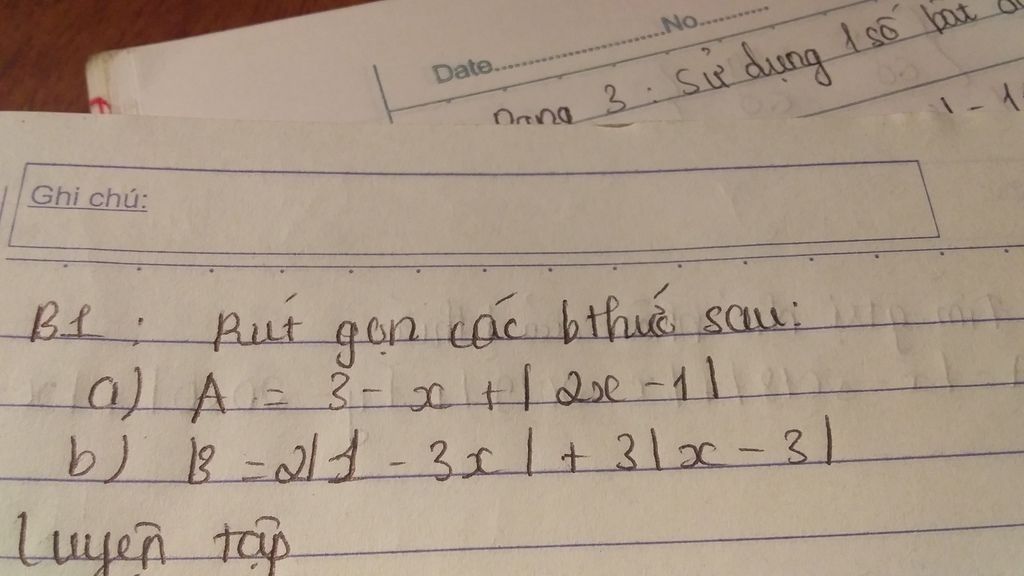 Date No
3 : Sử dụng 1 số bất
1 - 1
Ghi chú:
B1 : Rút gọn các bthức sau:
a) A = 3 - x + | 2x - 1 |
b) B = 2 | 1 - 3x | + 3 | x - 3 |
Luyện tập